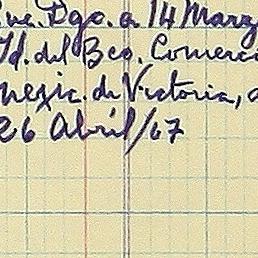 Dgo. a 14 Marz
Id. del Bco. Comerc
mexic. de Victoria, a
26 Abril/67